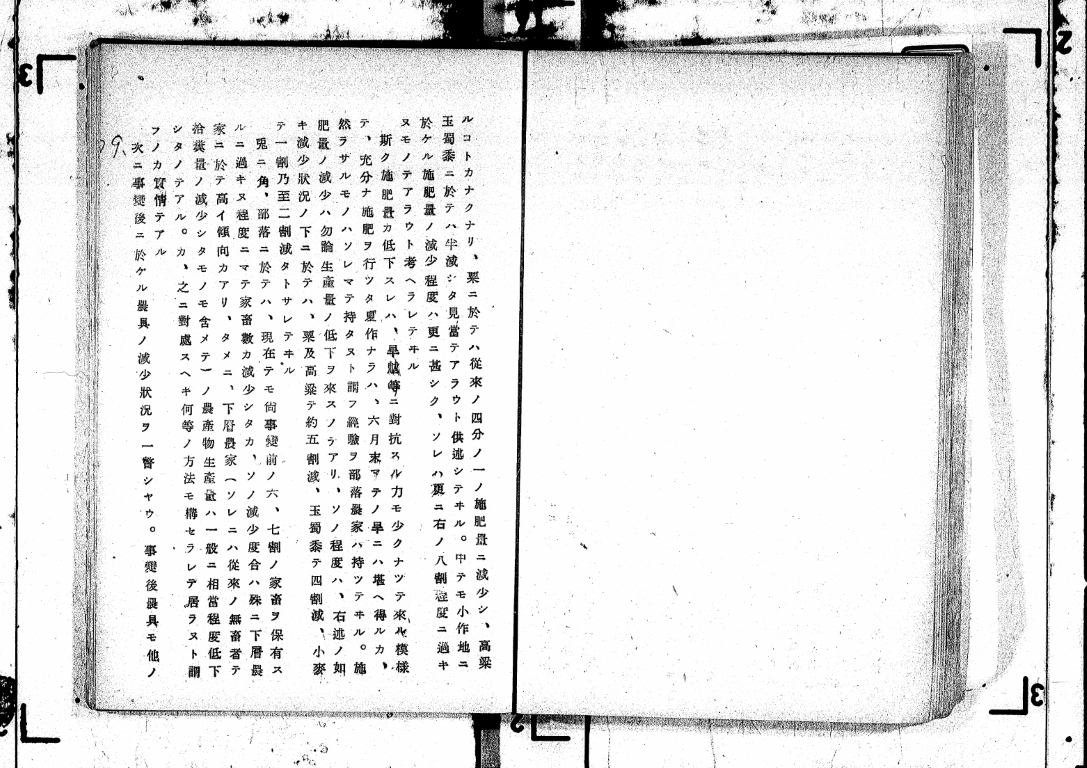 ルコトカナクナリ、粟ニ於テハ從來ノ四分ノ一ノ施肥量ニ減少シ、高粱
玉蜀黍ニ於テハ半減シタ見當テアラウト供述シテヰル。中テモ小作地ニ
於ケル施肥量ノ減少程度ハ更ニ甚シク、ソレハ更ニ右ノ八割程度ニ過キ
ヌモノテアラウト考ヘラレテヰル
斯ク施肥量カ低下スレハ、旱魃等ニ對抗スル力モ少クナツテ來ル模樣
テ、充分ナ施肥ヲ行ツタ畑作ナラハ、六月末マテノ旱ニハ堪ヘ得ルカ、
然ラサルモノハソレマテ持タヌト謂フ經驗ヲ部落農家ハ持ツテヰル。施
肥量ノ減少ハ勿論生產量ノ低下ヲ來スノテアリ、ソノ程度ハ、右述ノ如
キ減少狀況ノ下ニ於テハ、粟及高粱テ約五割減、玉蜀黍テ四割減、小麥
テ一割乃至二割減タトサレテヰル
兎ニ角、部落ニ於テハ、現在テモ尙事變前ノ六、七割ノ家畜ヲ保有ス
ルニ過キヌ程度ニマテ家畜數カ減少シタカ、ソノ減少度合ハ殊ニ下層農
家ニ於テ高イ傾向カアリ、タメニ、下層農家(ソレニハ從來ノ無畜者テ
拾糞量ノ減少シタモノモ含メテ)ノ農產物生產量ハ一般ニ相當程度低下
シタノテアル。カ、之ニ對處スヘキ何等ノ方法モ構セラレテ居ラヌト謂
フノカ實情テアル
次ニ事變後ニ於ケル農具ノ減少狀況ヲ一瞥シヤウ。事變後農具モ他ノ